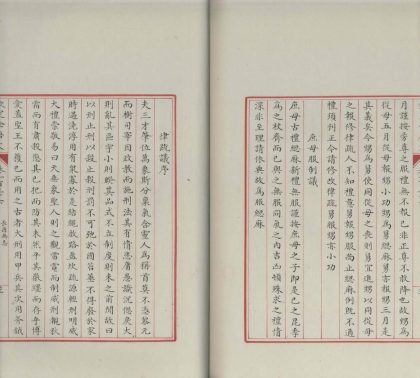 月謹按旁尊之服禮無不報已非正尊不敢降也故甥為
從母五月從母報甥小功甥為舅緦麻舅亦報甥三月是
其義矣今甥為舅使同從母之喪則舅宜進甥以同從母
之報修律疏人不知禮意舅報甥服尚止緦麻例既不通
禮須刊正今請修改律疏舅服甥亦小功
庶母服制議
庶母古禮緦麻新禮無服謹按庶母之子即是已昆季
為之杖齊而已與之無服同氣之內吉凶頓殊求之禮情
深非至理請依典故為服緦麻
律疏議序
夫三才肇位萬象斯分稟氣含靈人為稱首莫不憑黎元
而樹司宰因政教而施刑法其有情恣庸愚識沈愆戾大
則亂其區宇小則睽其品式不立制度則未之前聞故曰
以刑止刑以殺止殺刑罰不可弛於國笞箠不得廢於家
時遇澆淳用有眾寡於是結繩啟路盈坎疏源輕刑明威
大禮崇敬易曰天垂象聖人則之觀雷電而制威刑覩秋
霜而有肅殺懲其已犯而防其未然平其徽纆而存乎博
愛蓋聖王不獲已而用之古者大刑用甲兵其次用斧鉞
長孫無忌